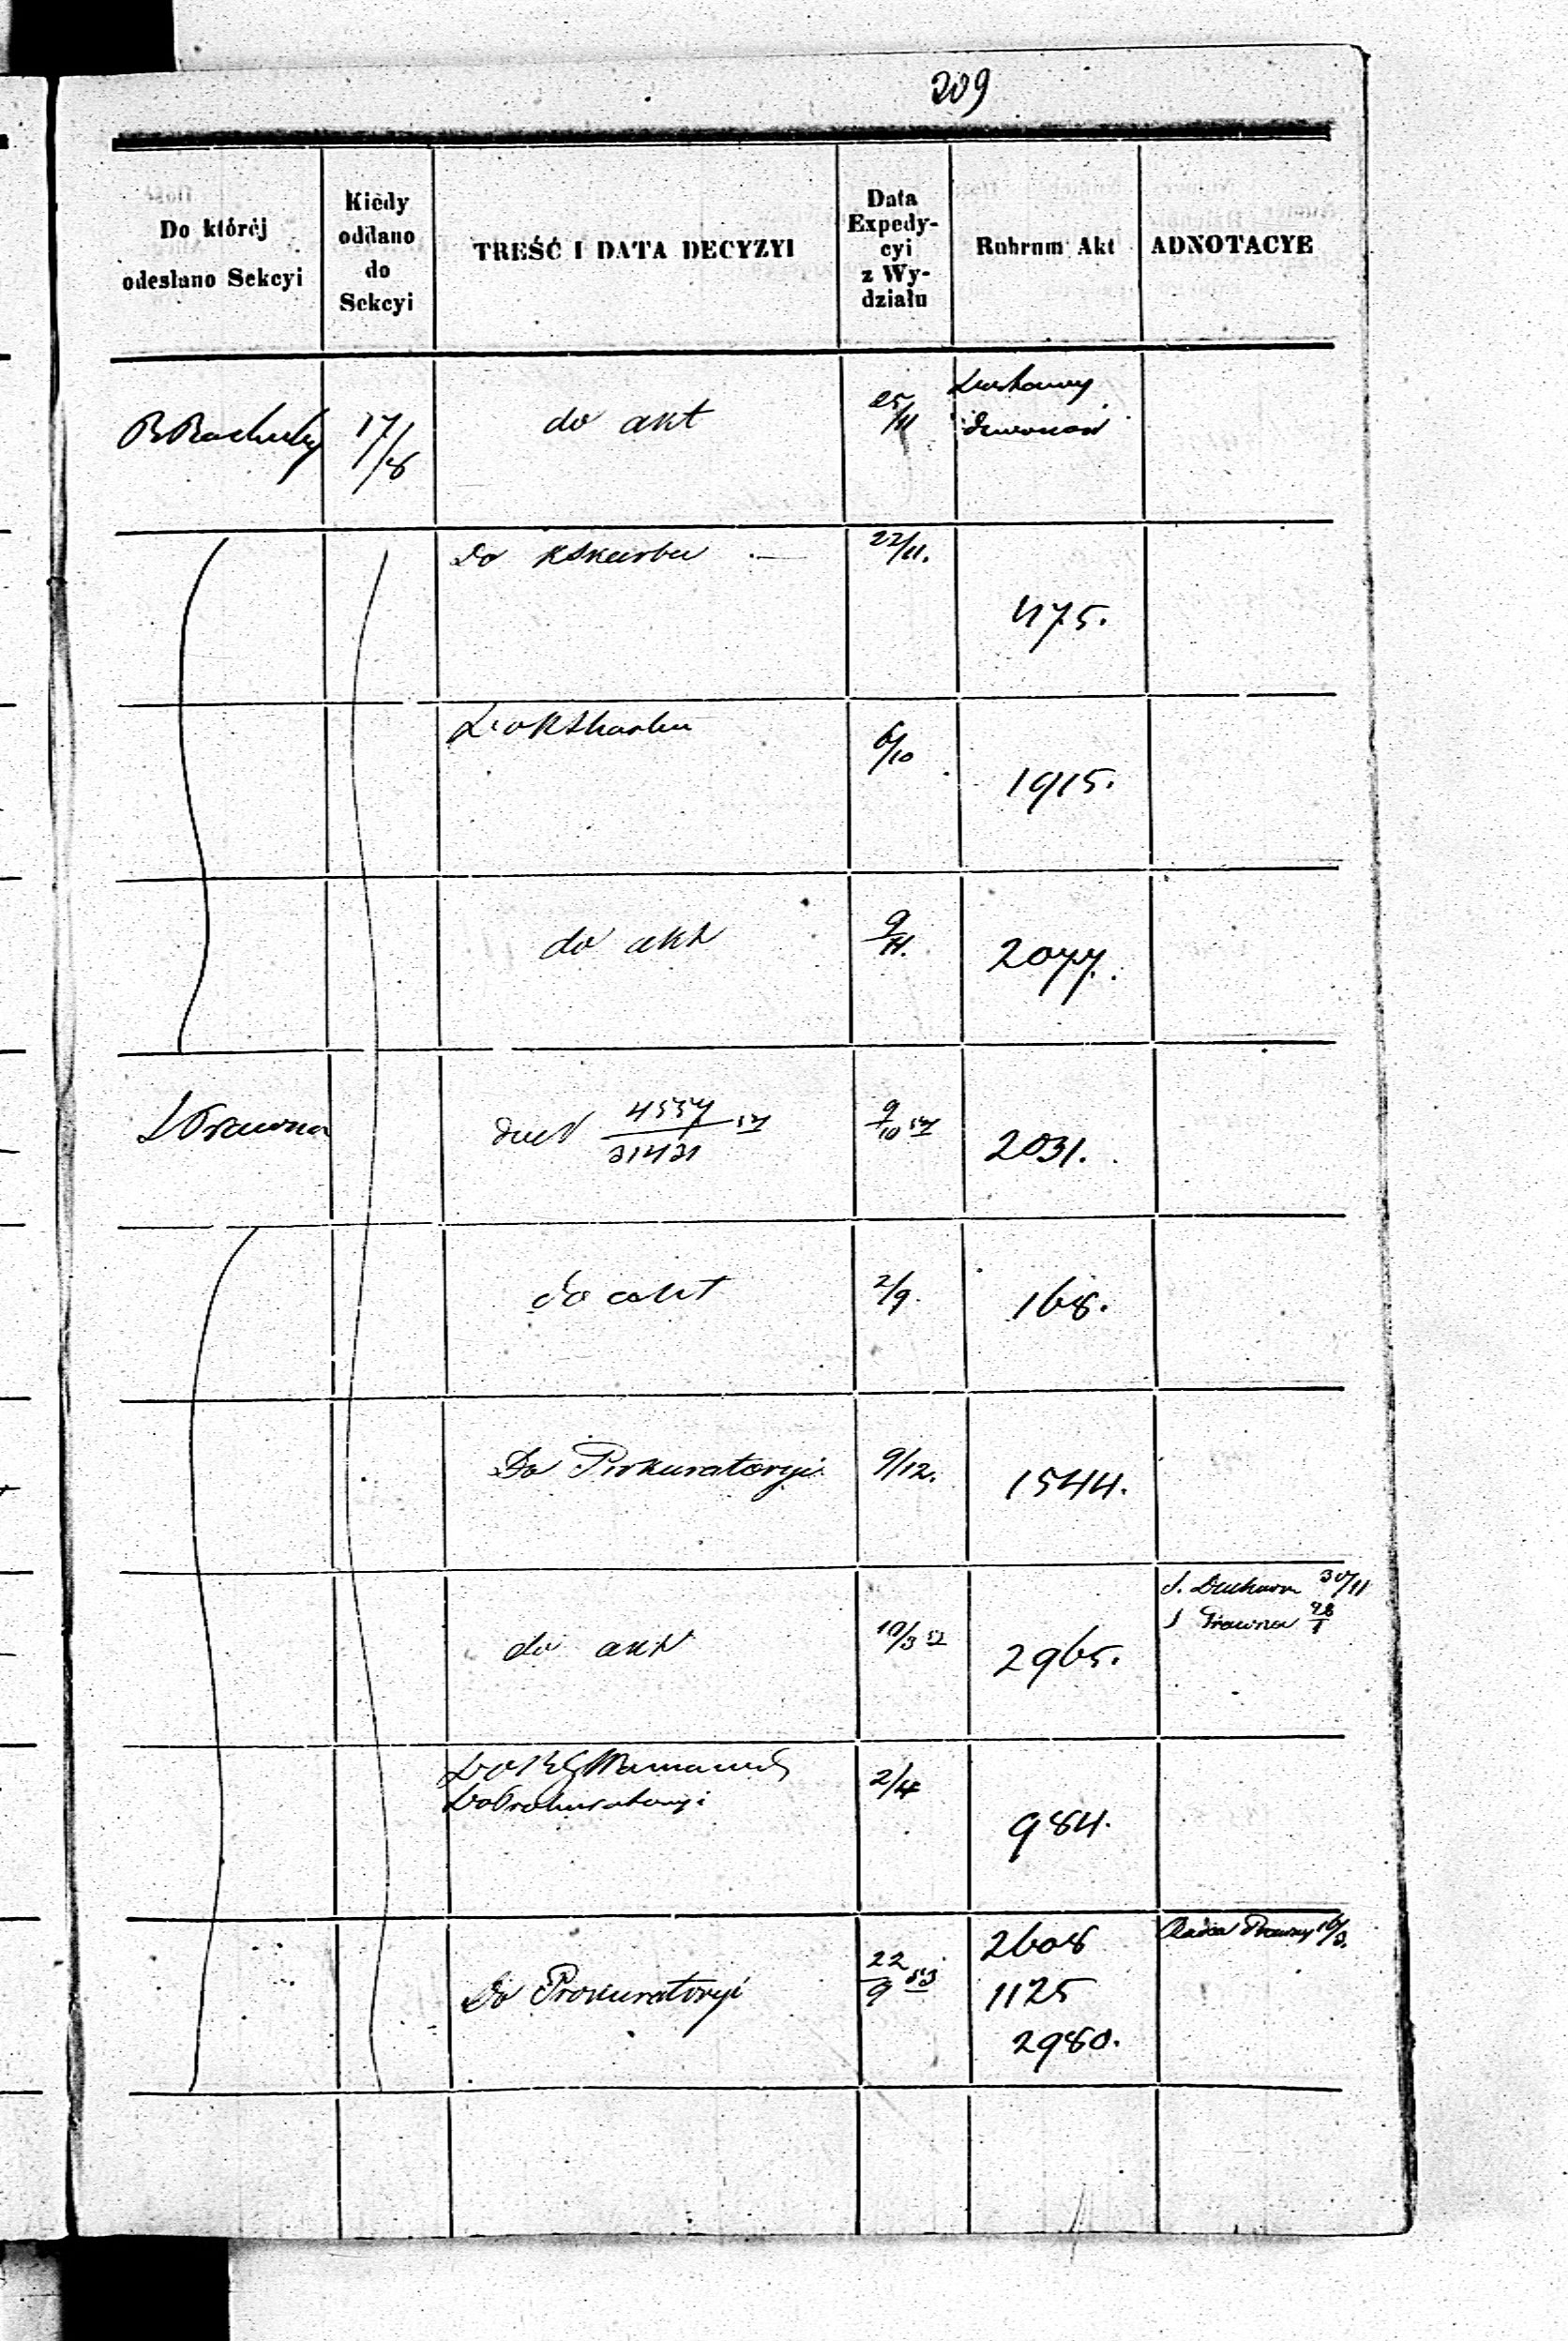 209
Do któréj odesłano Sekcyi | Kiédy oddano do Sekcyi | TREŚĆ I DATA DECYZYI | Data Expedycyi z Wydziału | Rubrum Akt | ADNOTACYE
B Rachuby | 17/8 | do akt | 25/11
Do K Skarbu — | 22/11. | 475.
Do K Skarbu | 6/10 | 1915.
do akt | 9/11. | 2077.
S Prawna | 4557/31431 | 9/10 | 2031.
do akt | 2/9. | 168.
Do Prokuratoryi | 9/12. | 1544.
do akt | 10/3 52 | 2965. | S. Duchown 30/11
S Prawna 28/1
Do Prokuratoryi | 2/4 | 984.
Do Prokuratoryi | 22/9 53 | 2608 | Radca Prawny 16/3.
1125
2980.